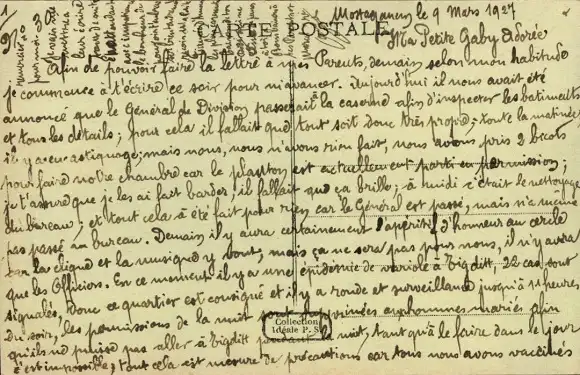 1
Mostaganem le 9 Mars 1927
CARTE POSTALE
Ma Petite Gaby Adorée
Afin de pouvoir faire la lettre à mes Parents, demain selon mon habitude
je commence à t'écrire ce soir pour m'avancer. Aujourd'hui il nous avait été
annoncé que le Général de Division passerait à la caserne afin d'inspecter les batiments
et tous les détails; pour cela il fallait que tout soit donc très propre; toute la matinée
il y a eu astiquage; mais nous, nous n'avons rien fait, nous avons pris 2 bicots
pour faire notre chambre car le planton est actuellement parti en permission;
je t'assure que je les ai fait barder, il fallait que ça brille; à midi c'était le nettoyage
du bureau, et tout cela a été fait pour rien car le Général est passé, mais n'a même
pas passé au bureau. Demain il y aura certainement l'apéritif d'honneur au cercle
car la clique et la musique y vont, mais ça ne sera pas pour nous, il n'y aura
que les Officiers. En ce moment il y a une épidémie de variole à Tigditt, 22 cas sont
signalés, donc ce quartier est consigné et il y a ronde et surveillance jusqu'à 11 heures
du soir, les permissions de la nuit sont supprimées aux hommes mariés afin
qu'ils ne puisse pas aller à Tigditt pendant la nuit, tant qu'à le faire dans le jour
c'est impossible; tout cela est mesure de précautions car tous nous avons vaccinés
Collection
Idéale P.S